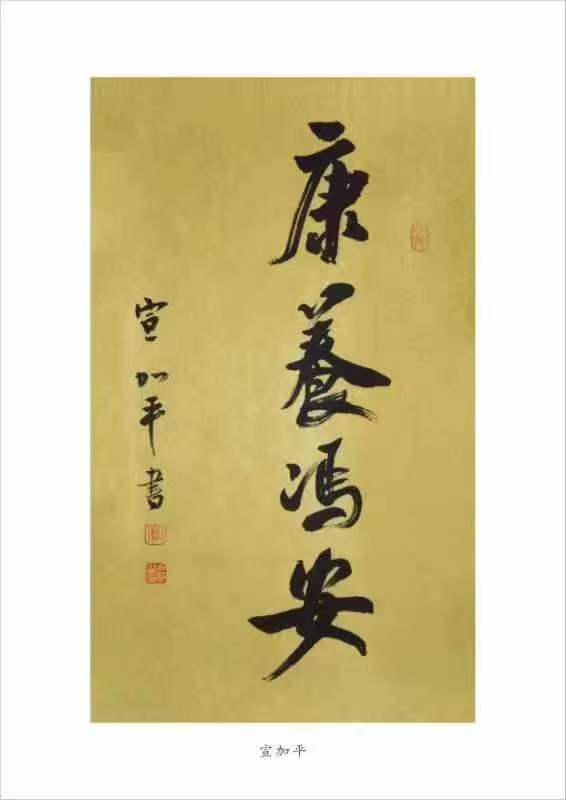 康養馮安
宣加平書
宣加平